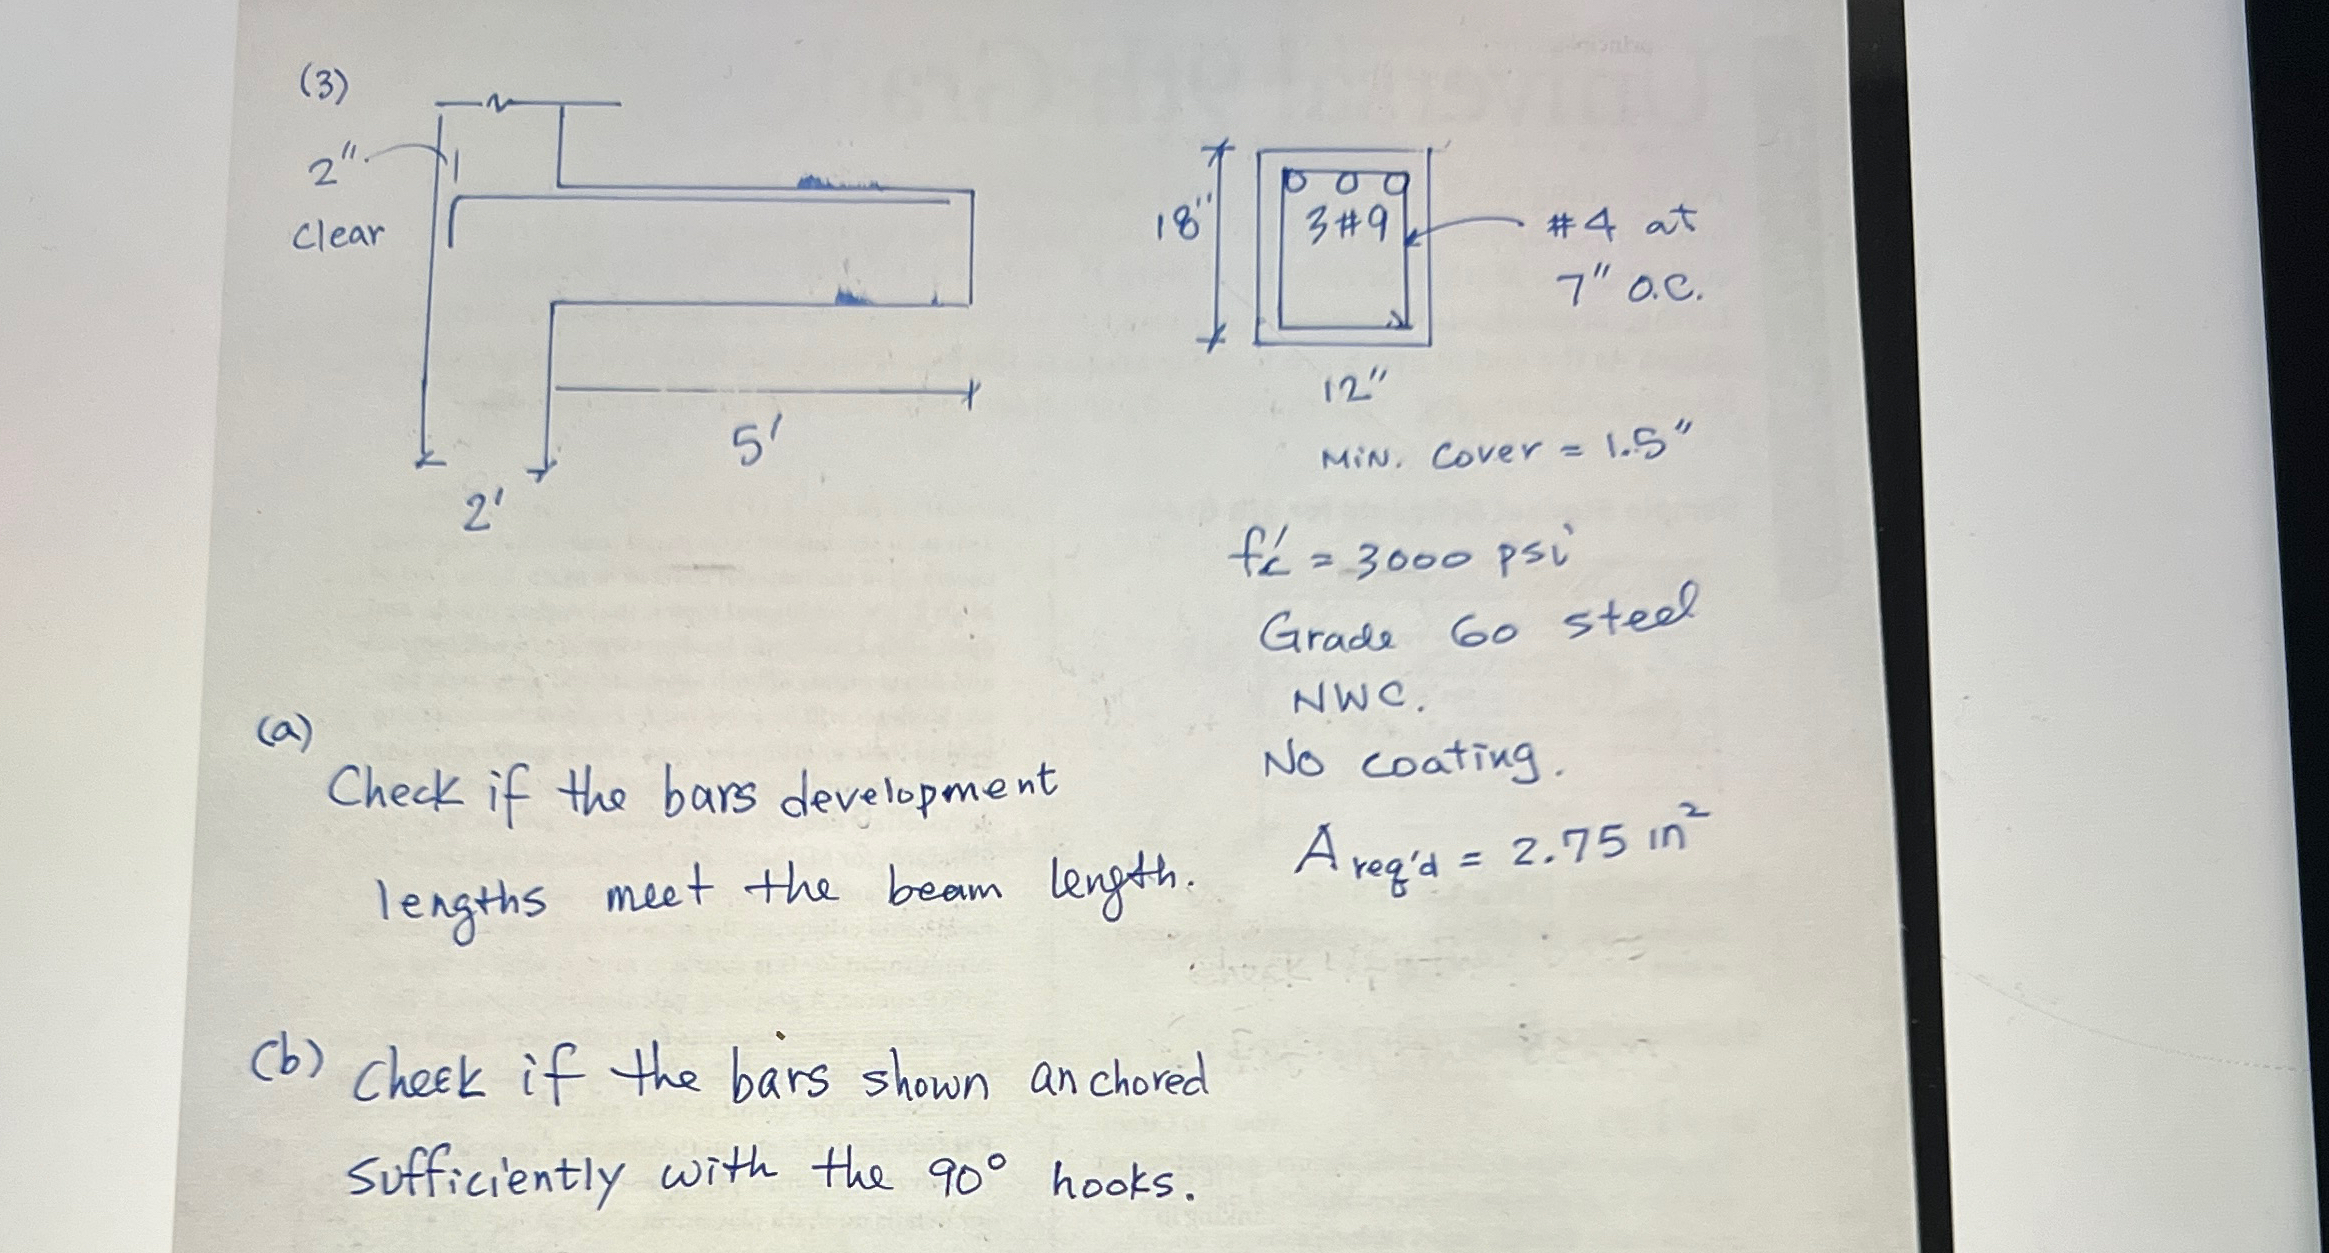 (3)
2"
clear
18"
3#9
#4 at
7" O.C.
12"
5'
2'
MIN. Cover = 1.5"
f'c = 3000 psi
Grade 60 steel
NWC.
No coating.
A req'd = 2.75 in²
(a)
Check if the bars development
lengths meet the beam length.
(b) Check if the bars shown anchored
sufficiently with the 90° hooks.